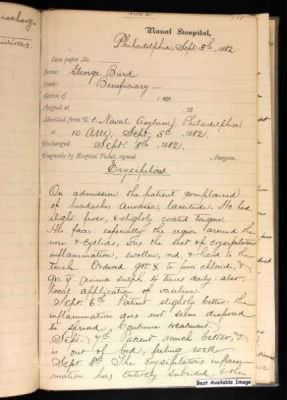 Naval Hospital,
Philadelphia, Sept. 5th, 1882.
Case paper No.
Name: George Burd
Rank: Beneficiary
Native of ; age
Shipped at , 18
Admitted from U.S. Naval Asylum, Philadelphia
10 A.M., Sept. 5th 1882.
Discharged Sept. 8th 1882.
Diagnosis by Hospital Ticket, signed , Surgeon.
Erysipelas
On admission the patient complained
of headache, anorexia, lassitude. He had
slight fever, & slightly coated tongue.
His face especially the region around the
nose & eyelids, was the seat of erysipelatous
inflammation, swollen, red, & hard to the
touch. Ordered gtt. Tr. ferri chloride, &
quinia sulph 4 times daily also
local application of vaseline.
Sept. 6th Patient slightly better the
inflammation does not seem disposed
to spread. Continue treatment.
Sept. 7th Patient much better, &
is out of bed, feeling well
Sept. 8th The Erysipelatous inflam-
mation has entirely subsided, & the
Best Available Image